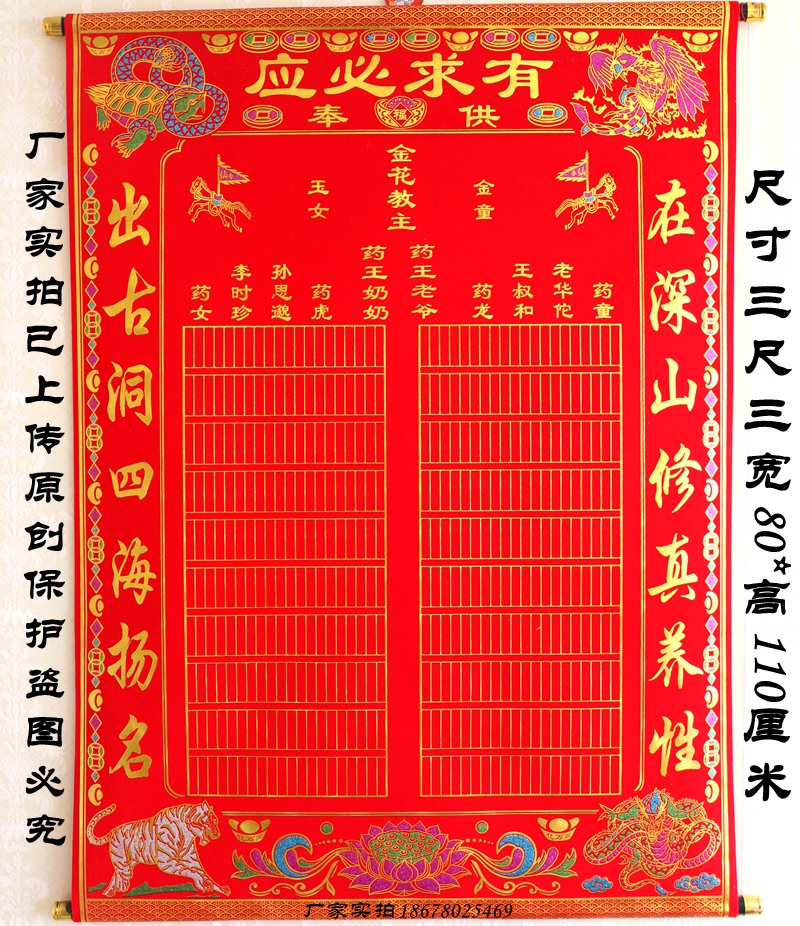 有求必应
供奉
在深山修真养性
出古洞四海扬名
金花教主
金童
玉女
药王老爷
药王奶奶
药童
老华佗
王叔和
药龙
药虎
孙思邈
李时珍
药女
福
厂家实拍已上传原创保护盗图必究
尺寸三尺三宽80*高110厘米
厂家实拍18678025469